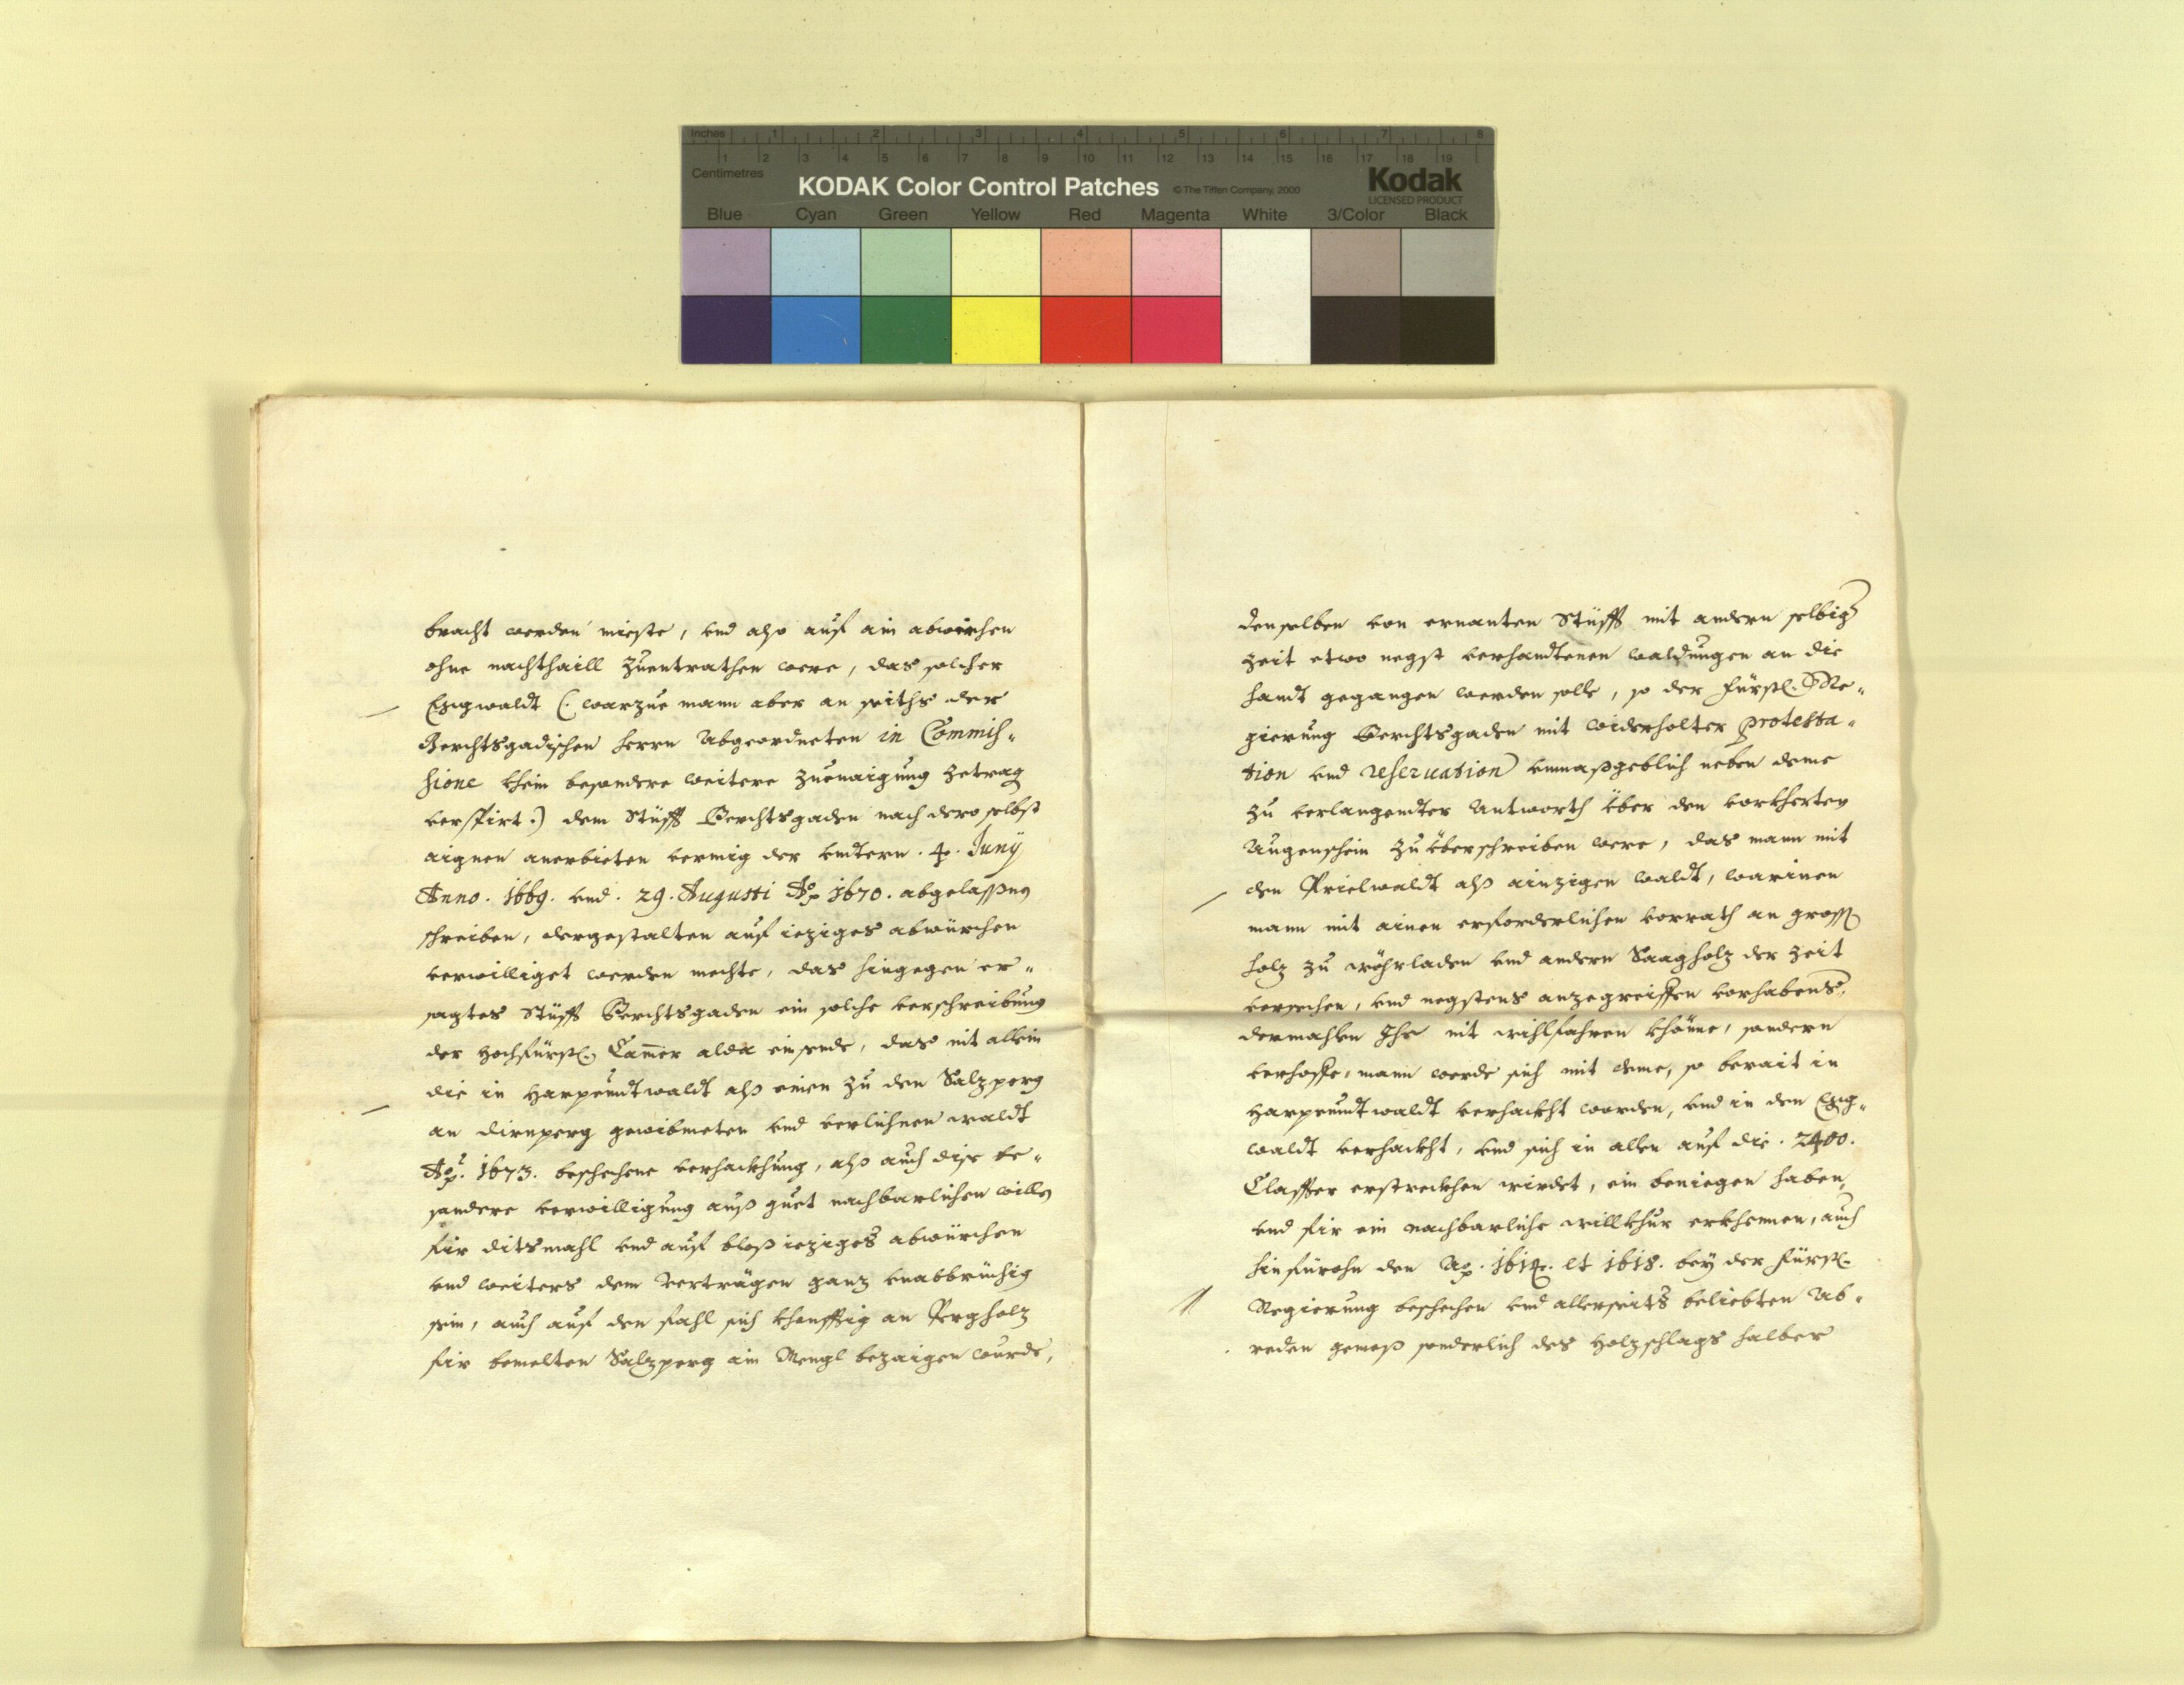 Inches 1 2 3 4 5 6 7 8
1 2 3 4 5 6 7 8 9 10 11 12 13 14 15 16 17 18 19
Centimetres
KODAK Color Control Patches © The Tiffen Company, 2000 Kodak
LICENSED PRODUCT
Blue Cyan Green Yellow Red Magenta White 3/Color Black
bracht werden mieste, vnd also auf ain abwirchen
ohne nachthaill zuentrathen were, das solcher
Eggwaldt (: warzue mann aber an seiths der
Berchtsgadischen herrn Abgeordneten in Commis„
sione khein besondere weitere zuenaigung zetrag
versirt :) dem Stüfft Berchtsgaden nach dero selbst
aignen anerbieten vermig der vndtern . 4. Juny
Anno . 1669. vnd . 29. Augusti Ao 1670. abgelassnen
schreiben, dergestalten auf ieziges abwürchen
verwilliget werden mechte, das hingegen er„
sagtes Stüfft Berchtsgaden ein solche verschreibung
der Hochfürstl. Camer alda einsende, das nit allein
die in Harpeundtwaldt alß einen zu den Salzperg
an Dirnperg gewidmeten vnd verlichnen waldt
Ao. 1673. beschechene verhackhung, alß auch dise be„
sondere verwilligung auß guet nachbarlichen willen
fir ditsmahl vnd auf bloß ieziges abwürchen
vnd weiters dem Verträgen ganz vnabbrüchig
sein, auch auf den fahl sich khonfftig an Pergholz
fir bemelten Salzperg ain Mengl bezaigen wurde,
denselben von ernanten Stüfft mit andern selbiger
zeit etwo negst verhandtenen waldungen an die
handt gegangen werden solle, so der Fürstl. Re„
gierung Berchtsgaden mit widerholter protesta„
tion vnd reseruation vnmaßgeblich neben deme
zu verlangendter Antworth über den vorkherten
Augenschein zu überschreiben were, das mann mit
den Prielwaldt alß ainzigen waldt, warinen
mann mit ainen erforderlichen vorrath an grossen
holz zu wöhrladen vnd andern Saagholz der zeit
versechen, vnd negstens anzegreiffen vorhabens,
dermahlen Ihr nit wihlfahren khönne, sondern
verhoffe, mann werde sich mit deme, so berait in
Harpeundtwaldt verhackht worden, vnd in den Egg„
waldt verhackht, vnd sich in allen auf die . 2400.
Claffter erstreckhen wirdet, ein beniegen haben,
vnd fir ein nachbarliche willkhur erkhennen, auch
hinfürohn den Ao. 1614. et 1618. bey der Fürstl.
Regierung beschechen vnd allerseits beliebten Ab„
reden gemeß sonderlich des Holzschlags halber